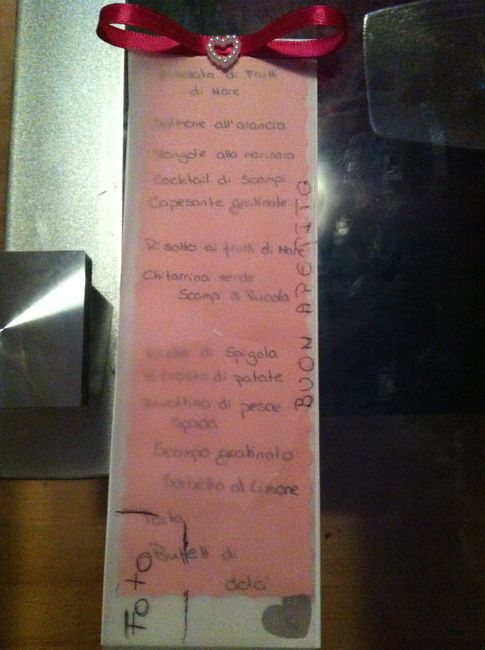 Insalata di Frutti
di Mare
Salmone all'arancia
Vongole alla marinara
Cocktail di Scampi
Capesante gratinate
Risotto ai frutti di Mare
Chitarrina verde
Scampi e Rucola
di Spigola
in crosta di patate
Involtino di pesce
Spada
Scampo gratinato
Sorbetto al Limone
Torta
Buffett di
dolci
BUON APPETITO
FOTO